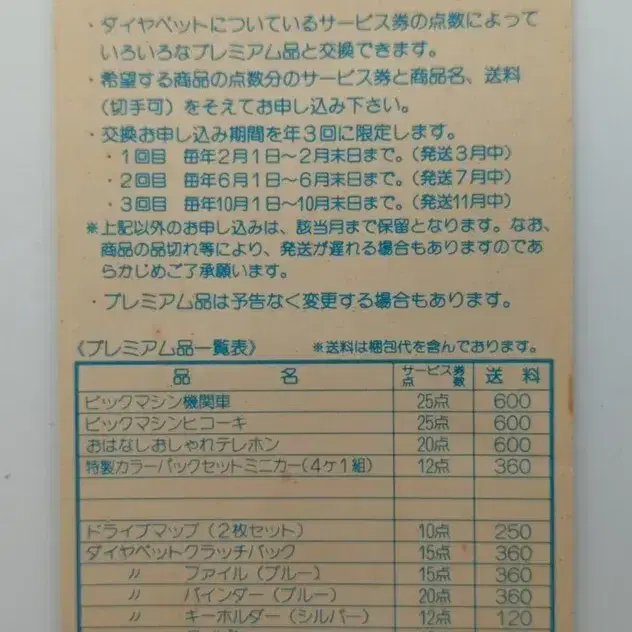 ・ダイヤペットについているサービス券の点数によって
いろいろなプレミアム品と交換できます。
・希望する商品の点数分のサービス券と商品名、送料
(切手可)をそえてお申し込み下さい。
・交換お申し込み期間を年3回に限定します。
・1回目 毎年2月1日〜2月末日まで。(発送3月中)
・2回目 毎年6月1日〜6月末日まで。(発送7月中)
・3回目 毎年10月1日〜10月末日まで。(発送11月中)
※上記以外のお申し込みは、該当月まで保留となります。なお、
商品の品切れ等により、発送が遅れる場合もありますのであ
らかじめご了承願います。
・プレミアム品は予告なく変更する場合もあります。
《プレミアム品一覧表》 ※送料は梱包代を含んでおります。
品 名 サービス券点数 送料
ビックマシン機関車 25点 600
ビックマシンヒコーキ 25点 600
おはなしおしゃれテレホン 20点 600
特製カラーパックセットミニカー(4ケ1組) 12点 360
ドライブマップ(2枚セット) 10点 250
ダイヤペットクラッチバック 15点 360
〃 ファイル(ブルー) 15点 360
〃 バインダー(ブルー) 20点 360
〃 キーホルダー(シルバー) 12点 120